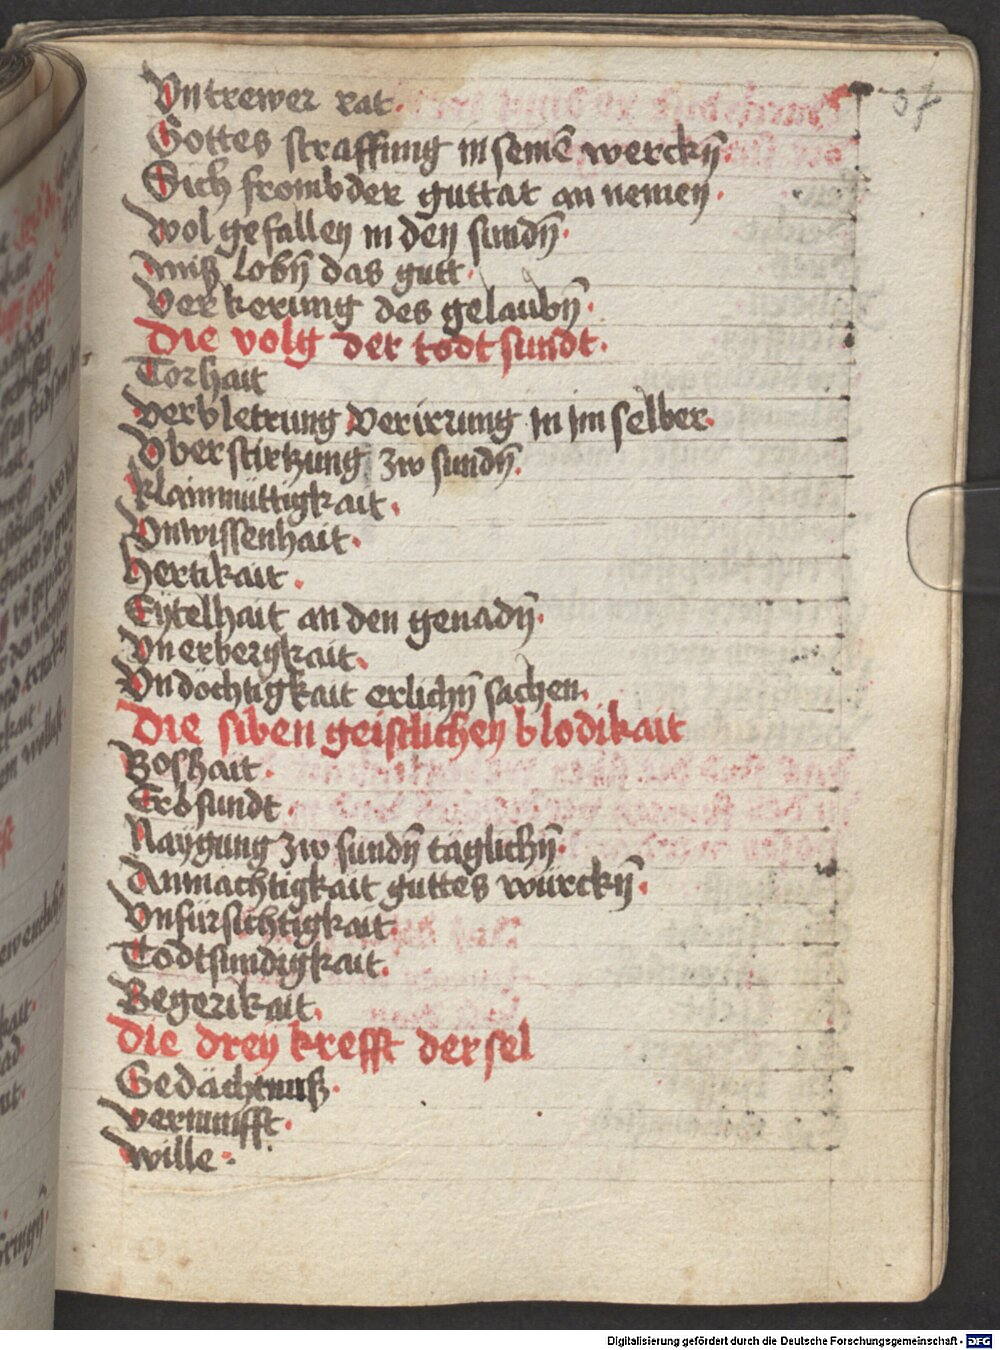 Vntrewer rat.
Gottes straffung in seinē werckn̄
Sich frombder guttat an nemen.
Wol gefallen in den sundn̄.
Miß lobn̄ das gutt.
Verkerung des gelaubn̄.
Die volg der todt sundt.
Torhait
Verbletrung Verirrung in im selber.
Vberstirtzung zw sundn̄.
Klainmüttigkait.
Vnwissenhait.
Hertikait.
Eytelhait an den genadn̄.
Vnerbergkait.
Vndöchtigkait erlichn̄ sachen.
Die siben geistlichen blodikait
Boshait.
Erbsundt.
Naygung zw sundn̄ täglichn̄.
Anmachtigkait guttes würckn̄.
Vnfürsichtigkait.
Todtsundigkait.
Begerikait.
Die drey krefft der sel
Gedächtnuß.
Vernunfft.
Wille.
37
Digitalisierung gefördert durch die Deutsche Forschungsgemeinschaft - DFG